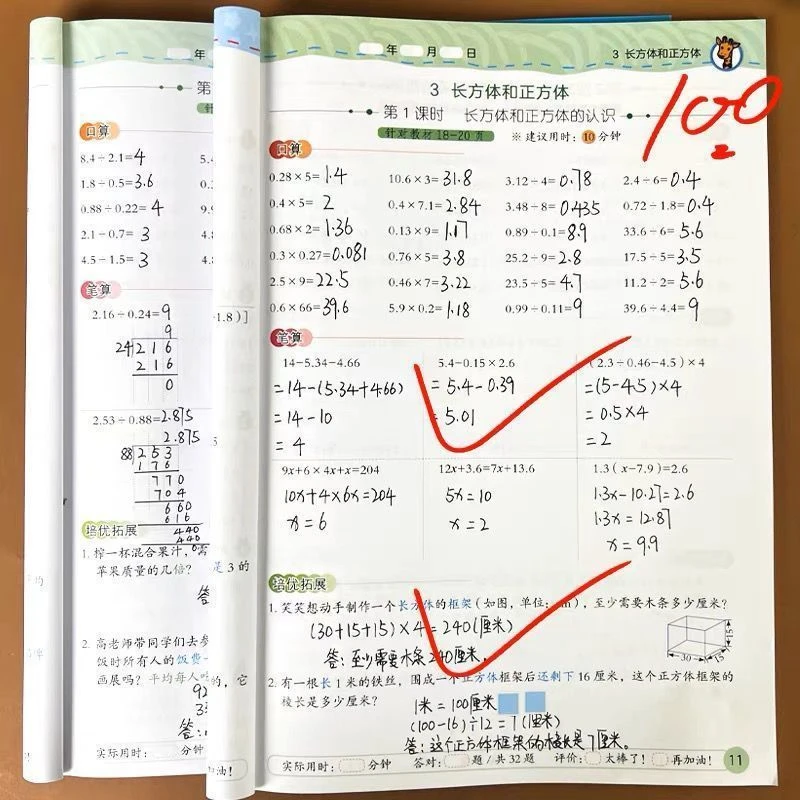 年
第
针
口算
8.4÷2.1=4
5.4
1.8÷0.5=3.6
0.
0.88÷0.22=4
9.9
2.1÷0.7=3
4.8
4.5÷1.5=3
4.8
笔算
2.16÷0.24=9
-1.8)]
9
24 216
216
0
2.53÷0.88=2.875
2.875
88 253
176
770
704
660
616
440
440
培优拓展
1. 榨一杯混合果汁,需
是 3 的
苹果质量的几倍?
答
2. 高老师带同学们去参
饭时所有人的饭费
画展吗?平均每人吃
的,它
92
实际用时: 分钟
加油!
年 月 日
3 长方体和正方体
3 长方体和正方体
100
第 1 课时 长方体和正方体的认识
针对教材 18-20 页 ※ 建议用时:10 分钟
口算
0.28×5=1.4 10.6×3=31.8 3.12÷4=0.78 2.4÷6=0.4
0.4×5=2 0.4×7.1=2.84 3.48÷8=0.435 0.72÷1.8=0.4
0.68×2=1.36 0.13×9=1.17 0.89÷0.1=8.9 33.6÷6=5.6
0.3×0.27=0.081 0.76×5=3.8 25.2÷9=2.8 17.5÷5=3.5
2.5×9=22.5 0.46×7=3.22 23.5÷5=4.7 11.2÷2=5.6
0.6×66=39.6 5.9×0.2=1.18 0.99÷0.11=9 39.6÷4.4=9
笔算
14-5.34-4.66 5.4-0.15×2.6 (2.3÷0.46-4.5)×4
=14-(5.34+4.66) =5.4-0.39 =(5-4.5)×4
=14-10 =5.01 =0.5×4
=4 =2
9x+6×4x+x=204 12x+3.6=7x+13.6 1.3(x-7.9)=2.6
10x+4×6x=204 5x=10 1.3x-10.27=2.6
x=6 x=2 1.3x=12.87
x=9.9
培优拓展
1. 笑笑想动手制作一个长方体的框架(如图,单位:cm),至少需要木条多少厘米?
(30+15+15)×4=240(厘米)
答:至少需要木条240厘米。
30 15 15
2. 有一根长 1 米的铁丝,围成一个正方体框架后还剩下 16 厘米,这个正方体框架的
棱长是多少厘米?
1米=100厘米
(100-16)÷12=7(厘米)
答:这个正方体框架的棱长是7厘米。
实际用时: 分钟 答对: 题/共 32 题 评价: 太棒了! 再加油!
11